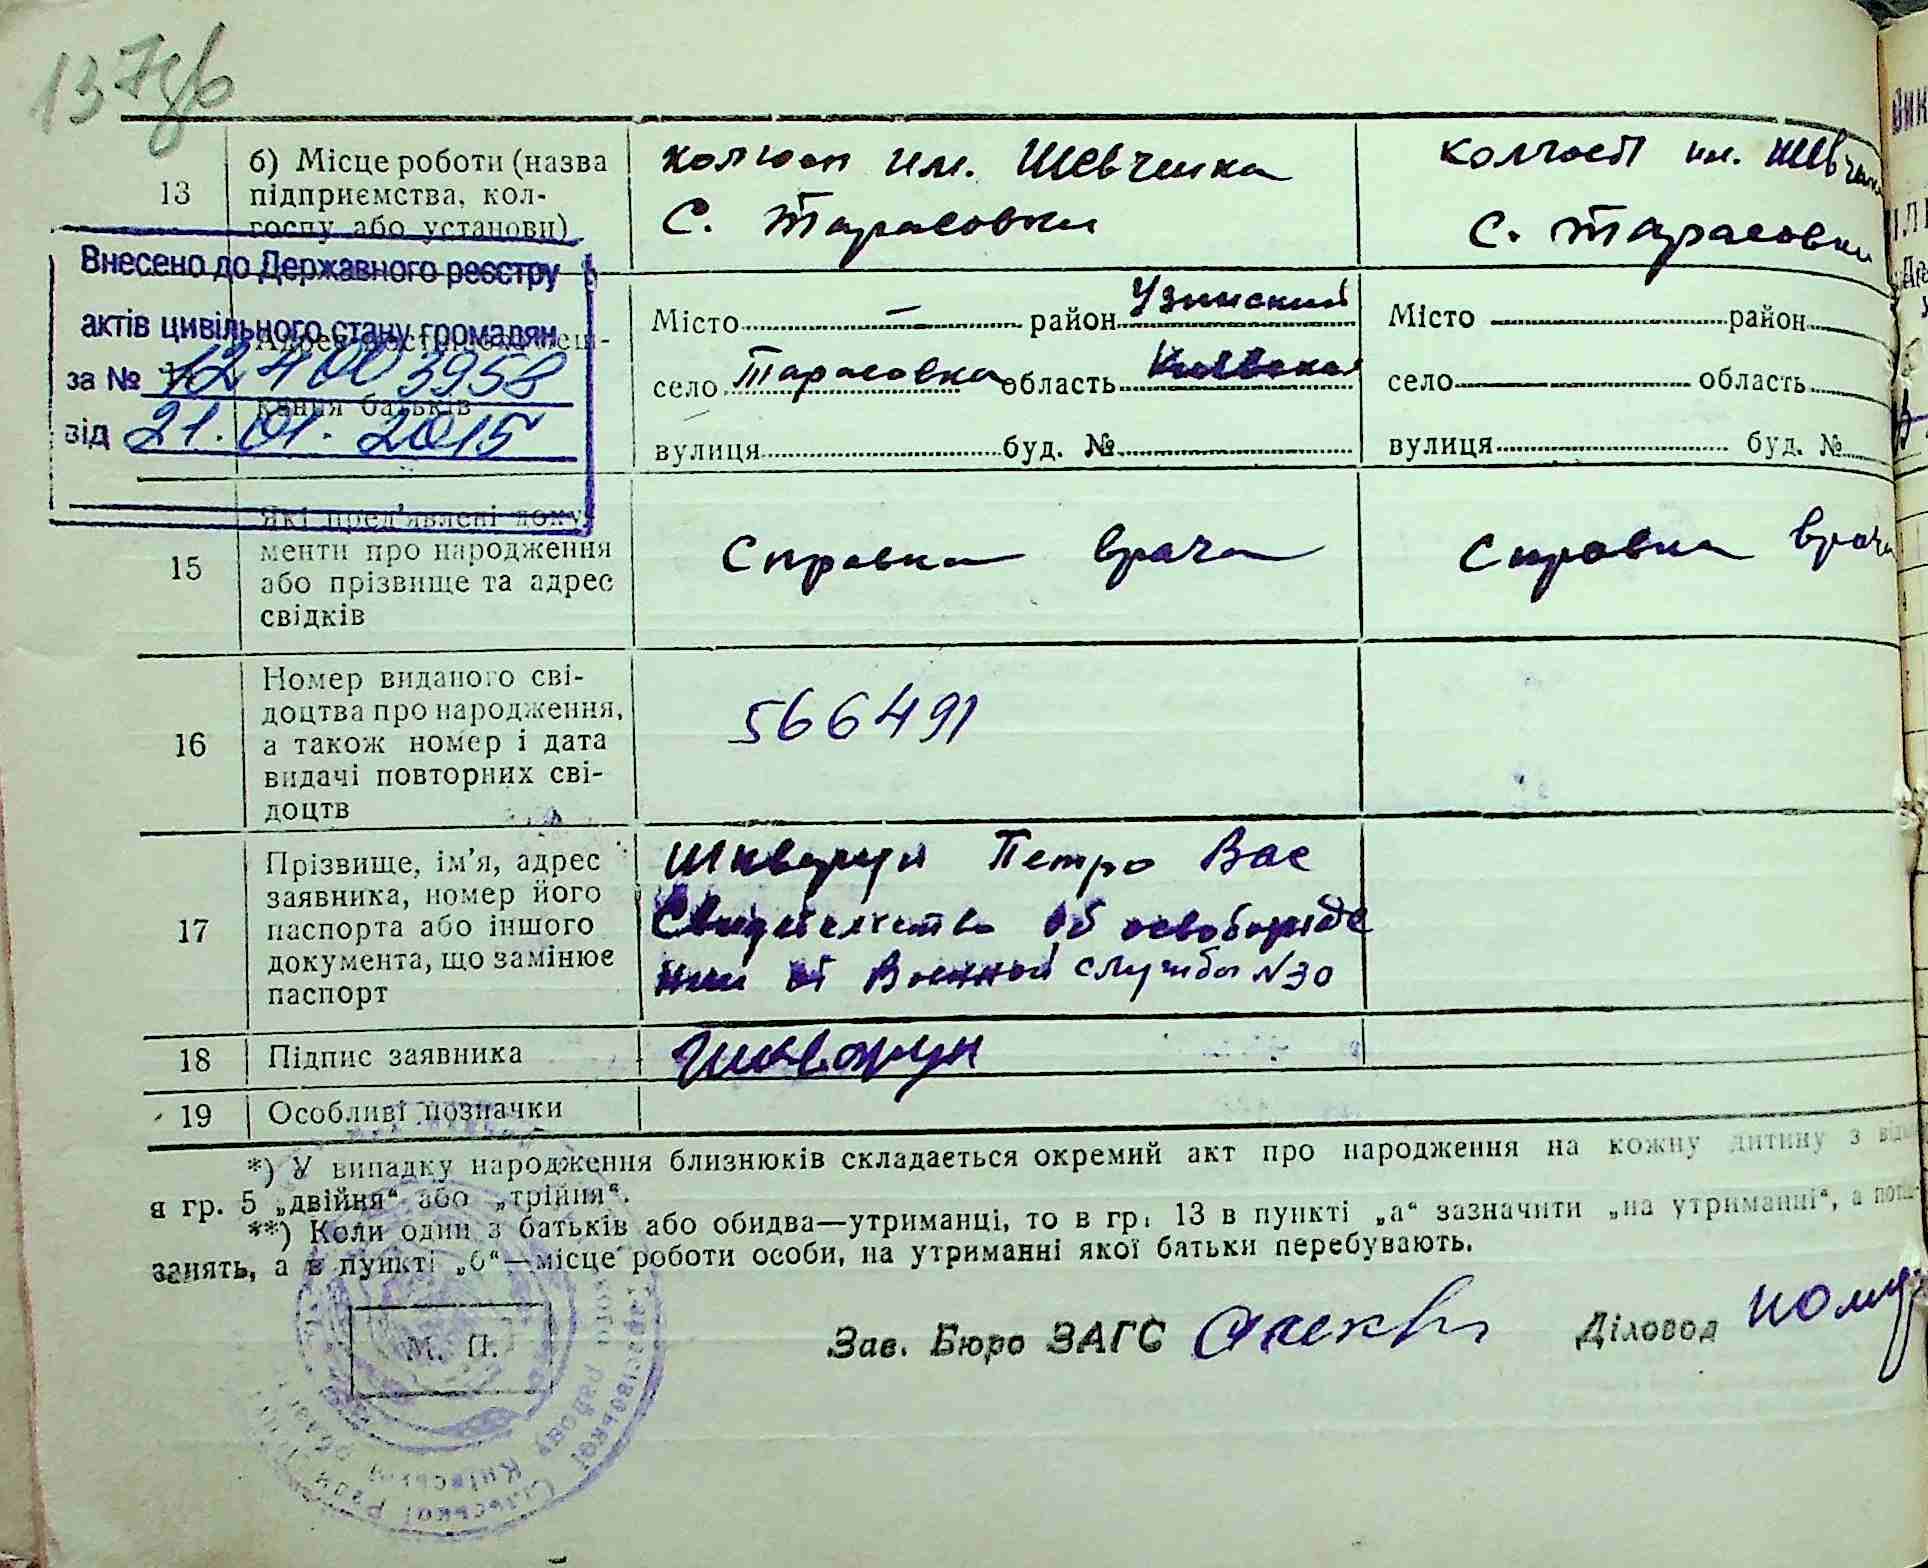 137зв
13
б) Місце роботи (назва
підприємства, кол-
госпу або установи)
колхоз им. Шевченка
С. Тарасовки
колхоз им. Шевченка
С. Тарасовки
Внесено до Державного реєстру
актів цивільного стану громадян
за № 12 400 3958
від 21.01.2015
кання батьків
Місто — район Узинский
село Тарасовка область Киевская
вулиця буд. №
Місто район
село область
вулиця буд. №
15
Які пред'явлені доку-
менти про народження
або прізвище та адрес
свідків
Справка врача
Справка врача
16
Номер виданого сві-
доцтва про народження,
а також номер і дата
видачі повторних сві-
доцтв
566491
17
Прізвище, ім'я, адрес
заявника, номер його
паспорта або іншого
документа, що замінює
паспорт
Петро Вас
Свидетельство об освобожде
нии от Военной службы N30
18
Підпис заявника
19
Особливі позначки
*) У випадку народження близнюків складається окремий акт про народження на кожну дитину з
я гр. 5 „двійня“ або „трійня“.
**) Коли один з батьків або обидва—утриманці, то в гр. 13 в пункті „а“ зазначити „на утриманні“, а
занять, а в пункті „б“—місце роботи особи, на утриманні якої батьки перебувають.
М. П.
Зав. Бюро ЗАГС
Діловод
Сільської Ради
району Київської